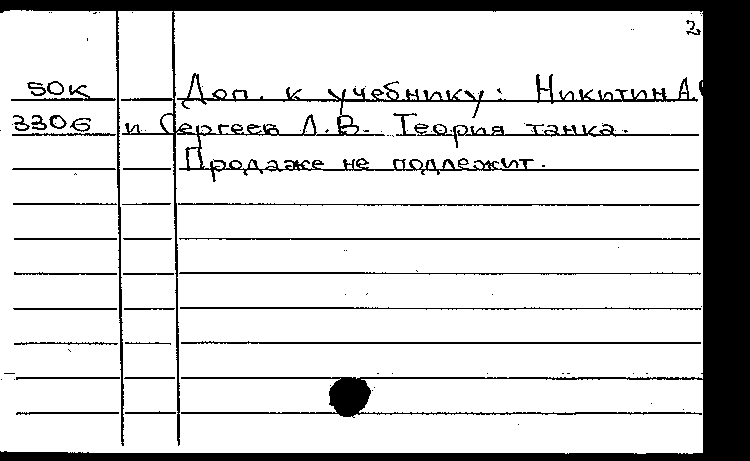 2
50К Доп. к учебнику: Никитин А.
3306 и Сергеев Л.В. Теория танка.
Продаже не подлежит.